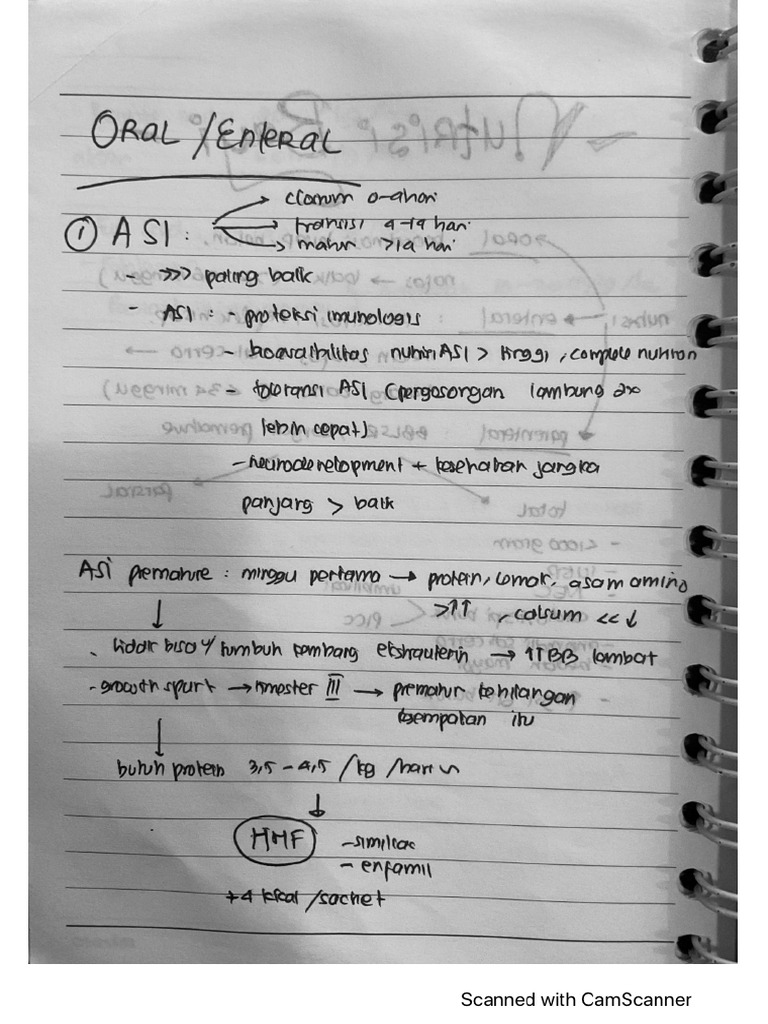 ORAL / ENTERAL
→ clorum 0-4hari
① ASI : → transisi 4-14 hari
→ matur >14 hari
- >>> paling baik
- ASI : - proteksi imunologis
- bioavaibilitas nutrisi ASI > tinggi, complete nutrition
- toleransi ASI (pengosongan lambung 2x
lebih cepat)
- neurodevelopment + kesehatan jangka
panjang > baik
ASI premature : minggu pertama → protein, lemak, asam amino
>↑↑ , calsium <<↓
↓
. tidak bisa u/ tumbuh kembang ekstrauterin → ↑↑BB lambat
- growth spurt → trimester III → prematur kehilangan
kesempatan itu
↓
butuh protein 3,5 - 4,5 /kg /hari
↓
HMF - similac
- enfamil
+4 kkal /sachet
Scanned with CamScanner